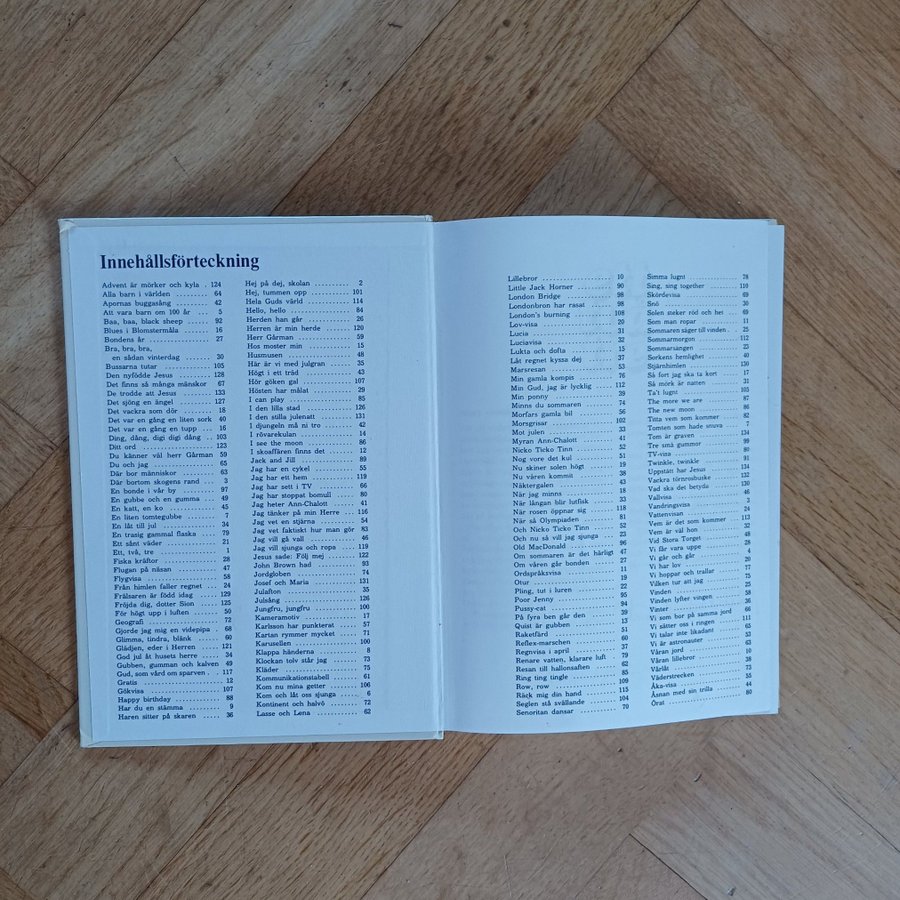 Innehållsförteckning
Advent är mörker och kyla . 124
Alla barn i världen ........ 64
Apornas buggasång ........ 42
Att vara barn om 100 år ... 5
Baa, baa, black sheep ...... 92
Blues i Blomstermåla ....... 16
Bondens år ................ 27
Bra, bra, bra,
en sådan vinterdag ....... 30
Bussarna tutar ............ 105
Den nyfödde Jesus ......... 128
Det finns så många mänskor 67
De trodde att Jesus ........ 133
Det sjöng en ängel ......... 127
Det vackra som dör ........ 18
Det var en gång en liten sork 40
Det var en gång en tupp ... 16
Ding, dång, digi digi dång .. 103
Ditt ord .................. 123
Du känner väl herr Gårman 59
Du och jag ................ 65
Där bor människor ......... 63
Där bortom skogens rand ... 3
En bonde i vår by .......... 97
En gubbe och en gumma ... 49
En katt, en ko ............. 45
En liten tomtegubbe ........ 7
En låt till jul ............. 34
En trasig gammal flaska .... 79
Ett sånt väder ............. 21
Ett, två, tre ............... 1
Fiska kräftor .............. 28
Flugan på näsan ........... 47
Flygvisa .................. 58
Från himlen faller regnet ... 24
Frälsaren är född idag ...... 129
Fröjda dig, dotter Sion ..... 125
För högt upp i luften ....... 50
Geografi .................. 72
Gjorde jag mig en videpipa . 68
Glimma, tindra, blänk ...... 60
Glädjen, eder i Herren ...... 121
God jul åt husets herre ..... 34
Gubben, gumman och kalven 49
Gud, som vård om sparven . 117
Gratis .................... 12
Gökvisa .................. 107
Happy birthday ............ 88
Har du en stämma ......... 9
Haren sitter på skaren ..... 36
Hej på dej, skolan .......... 2
Hej, tummen opp .......... 101
Hela Guds värld ........... 114
Hello, hello ............... 84
Herden han går ........... 26
Herren är min herde ....... 120
Herr Gårman .............. 59
Hos moster min ........... 15
Husmusen ................. 48
Här är vi med julgran ...... 35
Högt i ett träd ............ 43
Hör göken gal ............. 107
Hösten har målat .......... 29
I can play ................. 85
I den lilla stad ............ 126
I den stilla julenatt ........ 131
I djungeln må ni tro ....... 42
I rövarekulan .............. 14
I see the moon ............ 86
I skoaffären finns det ...... 12
Jack and Jill .............. 89
Jag har en cykel ........... 55
Jag har ett hem ........... 119
Jag har sett i TV .......... 66
Jag har stoppat bomull ..... 80
Jag heter Ann-Chalott ...... 41
Jag tänker på min Herre ... 116
Jag vet en stjärna .......... 54
Jag vet faktiskt hur man gör 83
Jag vill gå vall ............ 46
Jag vill sjunga och ropa .... 119
Jesus sade: Följ mej ........ 122
John Brown had ........... 93
Jordgloben ................ 74
Josef och Maria ............ 131
Julafton ................... 35
Julsång ................... 126
Jungfru, jungfru ........... 100
Kameramotiv .............. 17
Karlsson har punkterat ..... 57
Kartan rymmer mycket .... 71
Karusellen ................. 100
Klappa händerna .......... 8
Klockan tolv står jag ....... 73
Kläder .................... 75
Kommunikationstabell ...... 61
Kom nu mina getter ....... 106
Kom och låt oss sjunga .... 6
Kontinent och halvö ....... 72
Lasse och Lena ............ 62
Lillebror .................. 10
Little Jack Horner ......... 90
London Bridge ............ 98
Londonbron har rasat ...... 98
London's burning .......... 108
Lov-visa .................. 20
Lucia ..................... 31
Luciavisa .................. 32
Lukta och dofta ........... 15
Låt regnet kyssa dej ....... 37
Marsresan ................. 53
Min gamla kompis ......... 76
Min Gud, jag är lycklig .... 112
Min ponny ................ 39
Minns du sommaren ....... 74
Morfars gamla bil .......... 56
Morsgrisar ................ 102
Mot julen ................. 33
Myran Ann-Chalott ........ 41
Nicko Ticko Tinn .......... 52
Nog vore det kul .......... 51
Nu skiner solen högt ....... 19
Nu våren kommer ......... 38
Näktergalen ............... 43
När jag minns ............. 18
När långan blir lutfisk ..... 33
När rosen öppnar sig ...... 118
När så Olympiaden ........ 81
Och Nicko Ticko Tinn ..... 52
Och nu så vill jag sjunga .. 23
Old MacDonald ........... 96
Om sommaren är det härligt 47
Om våren går bonden ..... 27
Ordspråksvisa ............. 11
Otur ...................... 19
Pling, tut i luren ........... 22
Poor Jenny ................ 95
Pussy-cat .................. 94
På fyra ben går den ....... 39
Quist är gubben ........... 13
Raketfärd ................. 51
Reflex-marschen ........... 60
Regnvisa i april ............ 37
Renare vatten, klarare luft . 79
Resan till hallonsaften ..... 62
Ring ting tingle ........... 85
Row, row ................. 109
Räck mig din hand ........ 115
Seglen stå svällande ....... 104
Senoritan dansar .......... 70
Simma lugnt .............. 78
Sing, sing together ........ 110
Skördevisa ................ 69
Snö ...................... 30
Solen steker röd och het ... 69
Som man ropar ........... 11
Sommaren säger till vinden . 25
Sommarmorgon ........... 112
Sommarsången ............ 23
Sorkens hemlighet ......... 40
Stjärnhimlen .............. 130
Så fort jag ska ta kort ..... 17
Så mörk är natten ......... 31
Ta't lugnt ................. 105
The more we are .......... 87
The new moon ............ 86
Titta vem som kommer .... 82
Tomten som hade snuva ... 7
Tom är graven ............ 134
Tre små gummor .......... 99
TV-visa ...................
Twinkle, twinkle .......... 91
Uppstått har Jesus ......... 134
Vackra törnrosbuske ....... 132
Vad ska det betyda ........ 130
Vallvisa ................... 46
Vandringsvisa ............. 3
Vattenvisan ............... 24
Vem är det som kommer .. 113
Vem är väl hon ...........
Vid Stora Torget .......... 48
Vi får vara uppe .......... 28
Vi går och går ............ 4
Vi har lov ................ 20
Vi hoppar och trallar ...... 77
Vilken tur att jag ......... 75
Vinden ................... 25
Vinden lyfter vingen ...... 58
Vinter ....................
Vi som bor på samma jord . 66
Vi sätter oss i ringen ...... 111
Vi talar inte likadant ...... 65
Vi är astronauter .......... 53
Våran jord ................ 63
Våran lillebror ............ 10
Vårlåt .................... 38
Väderstrecken ............. 73
Åka-visa .................. 55
Åsnan med sin trilla ....... 44
Örat ..................... 80